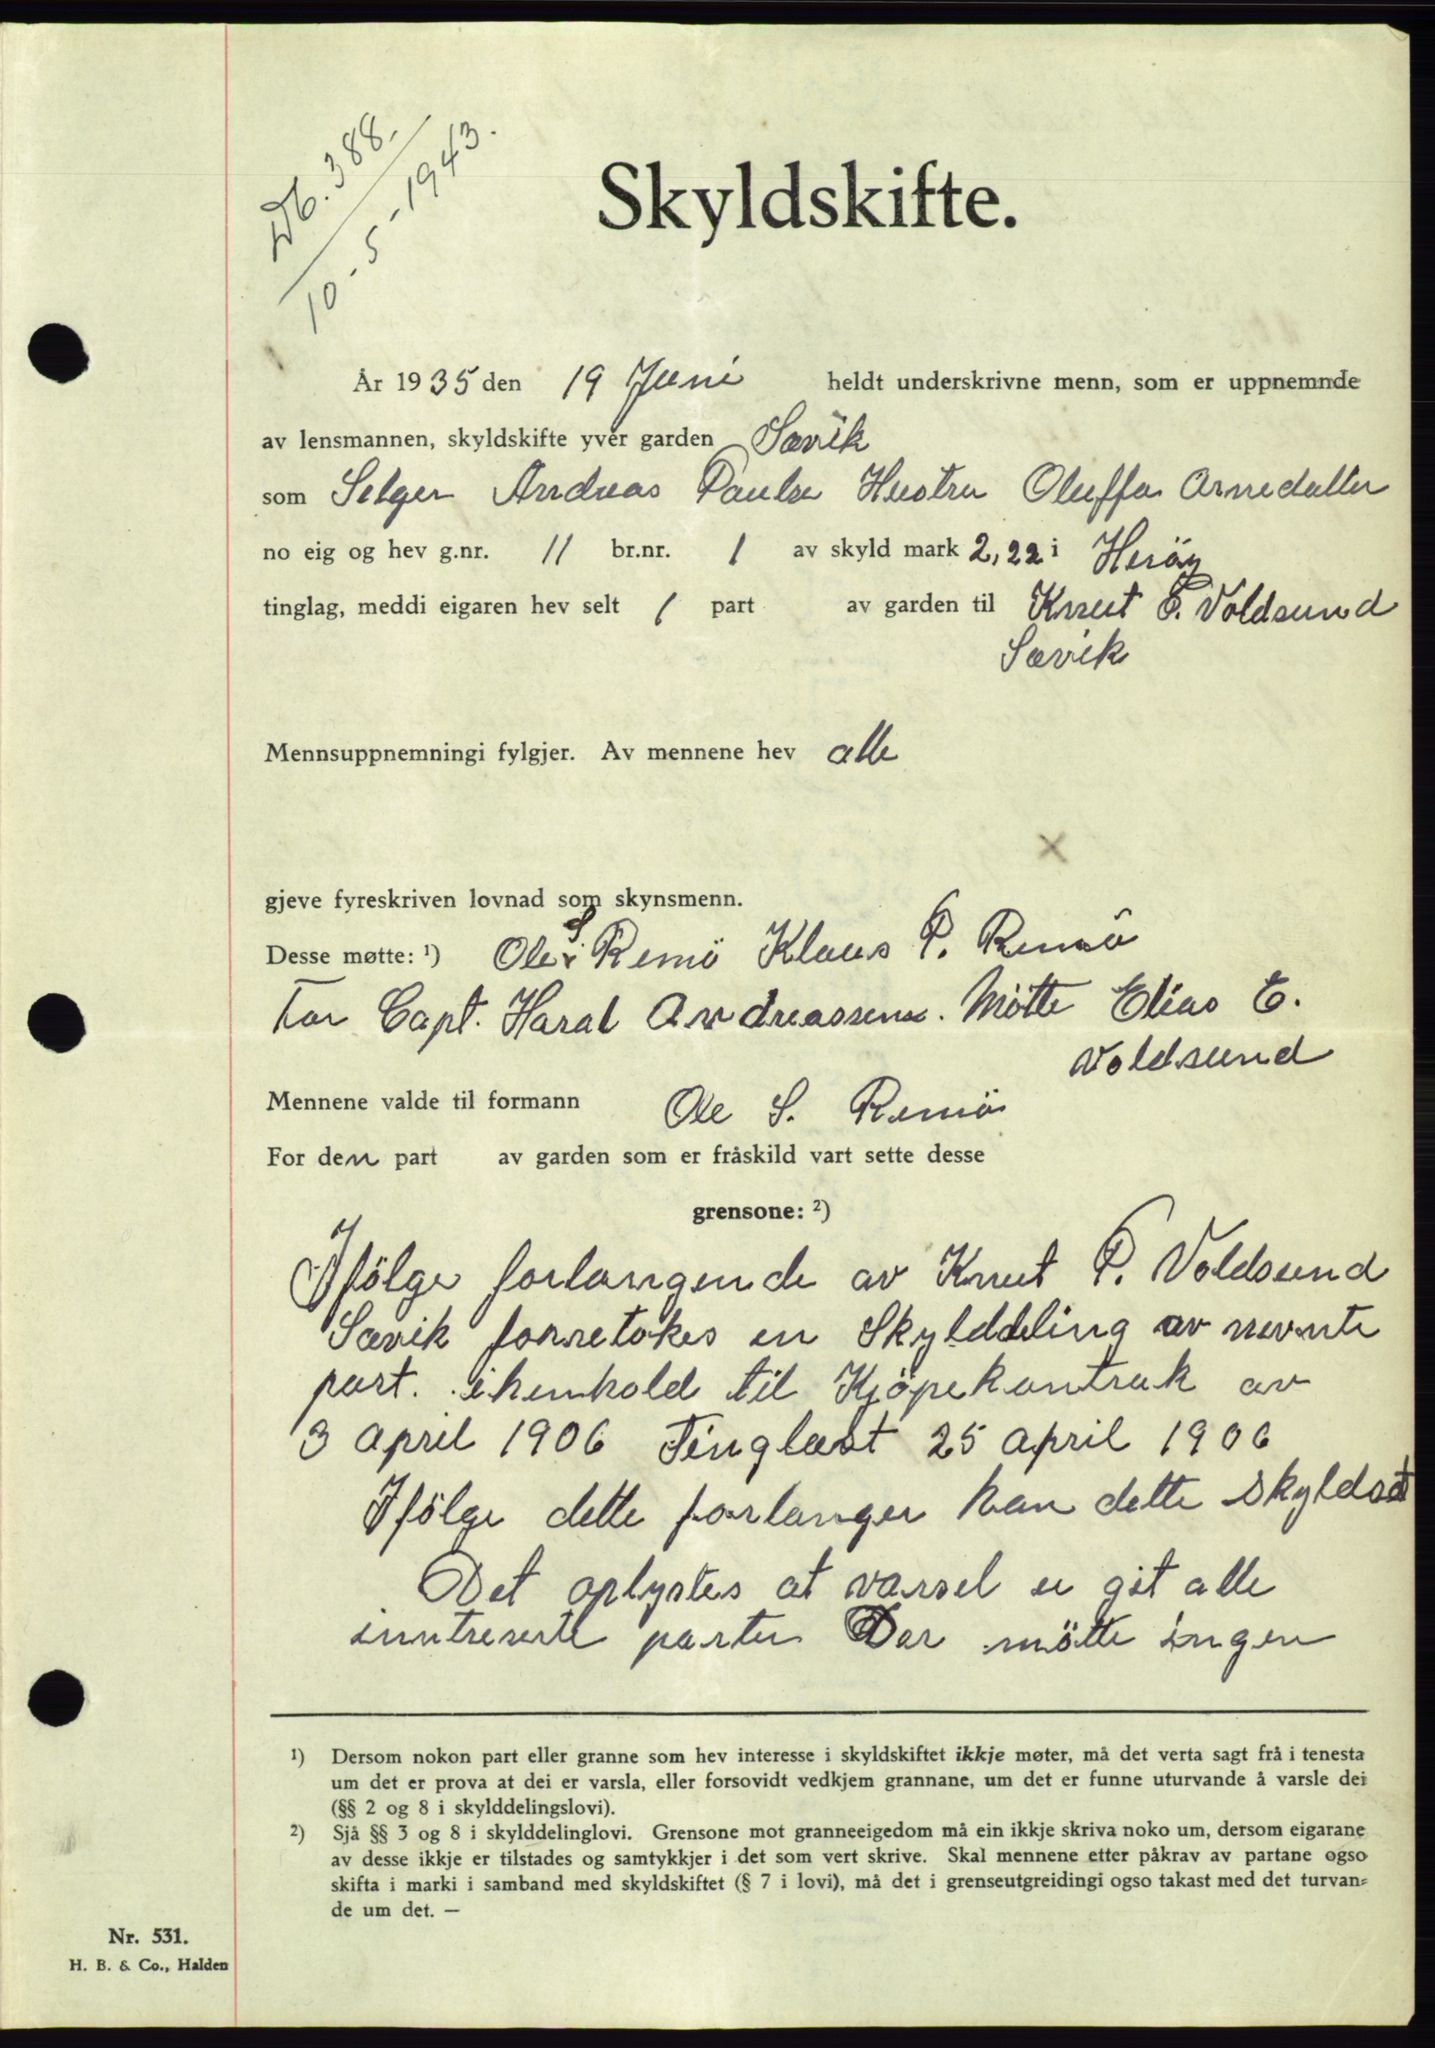 Db. 388.
10-5-1943.
Skyldskifte.
År 1935 den 19 Juni heldt underskrivne menn, som er uppnemnde
av lensmannen, skyldskifte yver garden Sævik
som Selger Andreas Paulsen Hustru Oluffa Arnedatter
no eig og hev g.nr. 11 br.nr. 1 av skyld mark 2,22 i Herøy
tinglag, meddi eigaren hev selt 1 part av garden til Knut P. Voldsund
Sævik
Mennsuppnemningi fylgjer. Av mennene hev alle
gjeve fyreskriven lovnad som skynsmenn.
Desse møtte: ¹) Ole S Remö Klaus P. Remö
For Capt. Haral Andreassen. Møtte Elias E.
Voldsund
Mennene valde til formann Ole S. Remö
For den part av garden som er fråskild vart sette desse
grensone: ²)
Ifölge forlangende av Knut P. Voldsund
Sævik forretokes en Skylddeling av nevnte
part. ihenhold til Kjöpekontrak av
3 april 1906 Tinglæst 25 april 1906
Ifölge dette forlanger han dette skyldsat
Det oplystes at varsel er git alle
inntreserte parter Der mötte ingen
¹) Dersom nokon part eller granne som hev interesse i skyldskiftet ikkje møter, må det verta sagt frå i tenesta
um det er prova at dei er varsla, eller forsovidt vedkjem grannane, um det er funne uturvande å varsle dei
(§§ 2 og 8 i skylddelingslovi).
²) Sjå §§ 3 og 8 i skylddelinglovi. Grensone mot granneeigedom må ein ikkje skriva noko um, dersom eigarane
av desse ikkje er tilstades og samtykkjer i det som vert skrive. Skal mennene etter påkrav av partane ogso
skifta i marki i samband med skyldskiftet (§ 7 i lovi), må det i grenseutgreidingi ogso takast med det turvan-
de um det. —
Nr. 531.
H. B. & Co., Halden